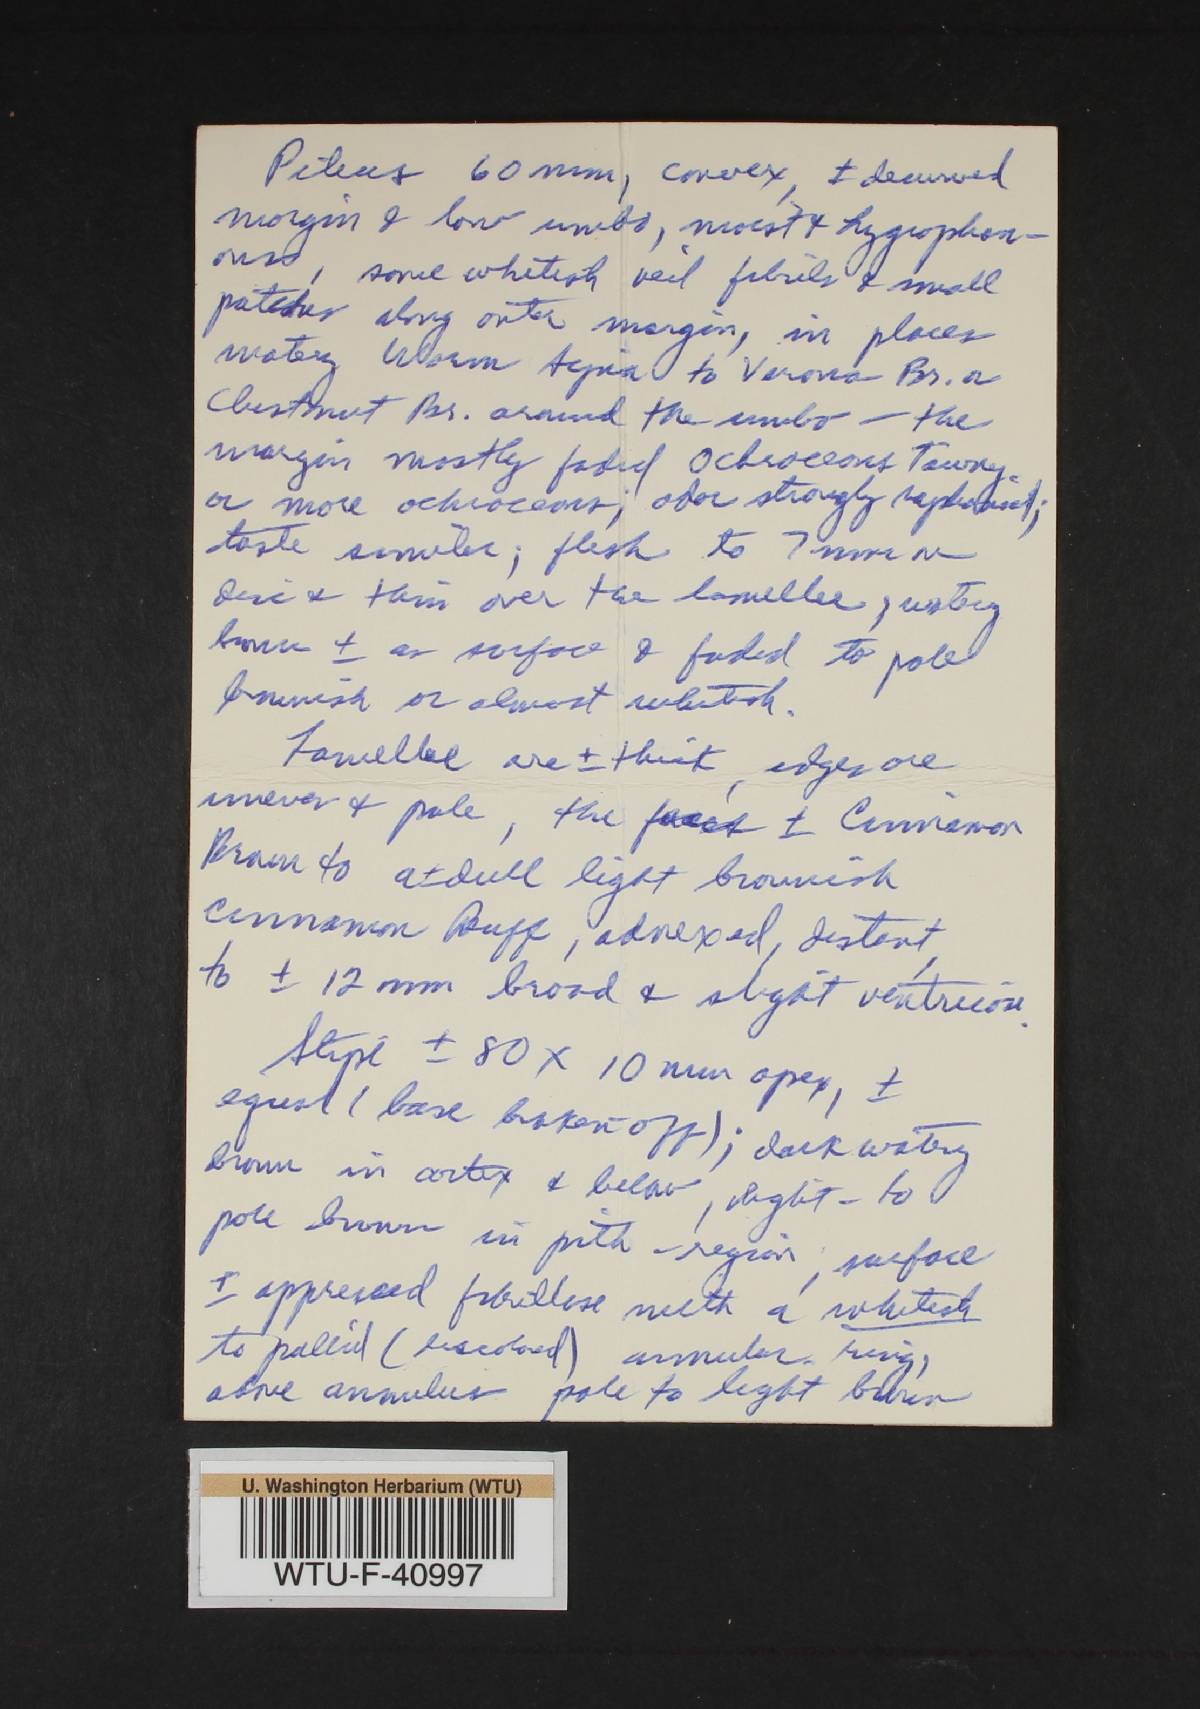 Pileus 60 mm, convex, ± decurved
margin & low umbo, moist & hygrophan-
ous, some whitish veil fibrils & small
patches along outer margin, in places
watery Warm Sepia to Verona Br. or
Chestnut Br. around the umbo — the
margin mostly faded Ochraceous Tawny
or more ochraceous; odor strongly raphanoid;
taste similar; flesh to 7 mm in
disc & thin over the lamellae, watery
brown ± as surface & faded to pale
brownish or almost whitish.
Lamellae are ± thick, edges are
uneven & pale, the faces ± Cinnamon
Brown to a ± dull light brownish
Cinnamon Buff, adnexed, distant,
to ± 12 mm broad & slight ventricose.
Stipe ± 80 x 10 mm apex, ±
equal (base broken off); dark watery
brown in cortex & below, light - to
pale brown in pith - region, surface
± appressed fibrillose with a whitish
to pallid (discolored) annular ring,
above annulus pale to light brown
U. Washington Herbarium (WTU)
WTU-F-40997